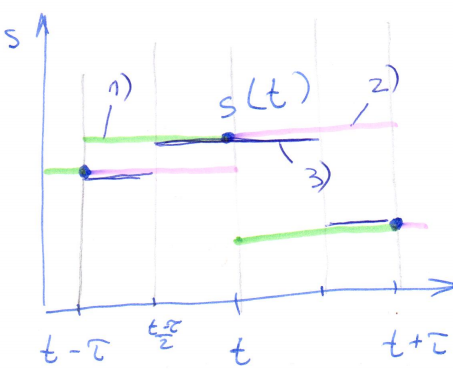 s
1)
s(t)
2)
3)
t-τ
t
t+τ